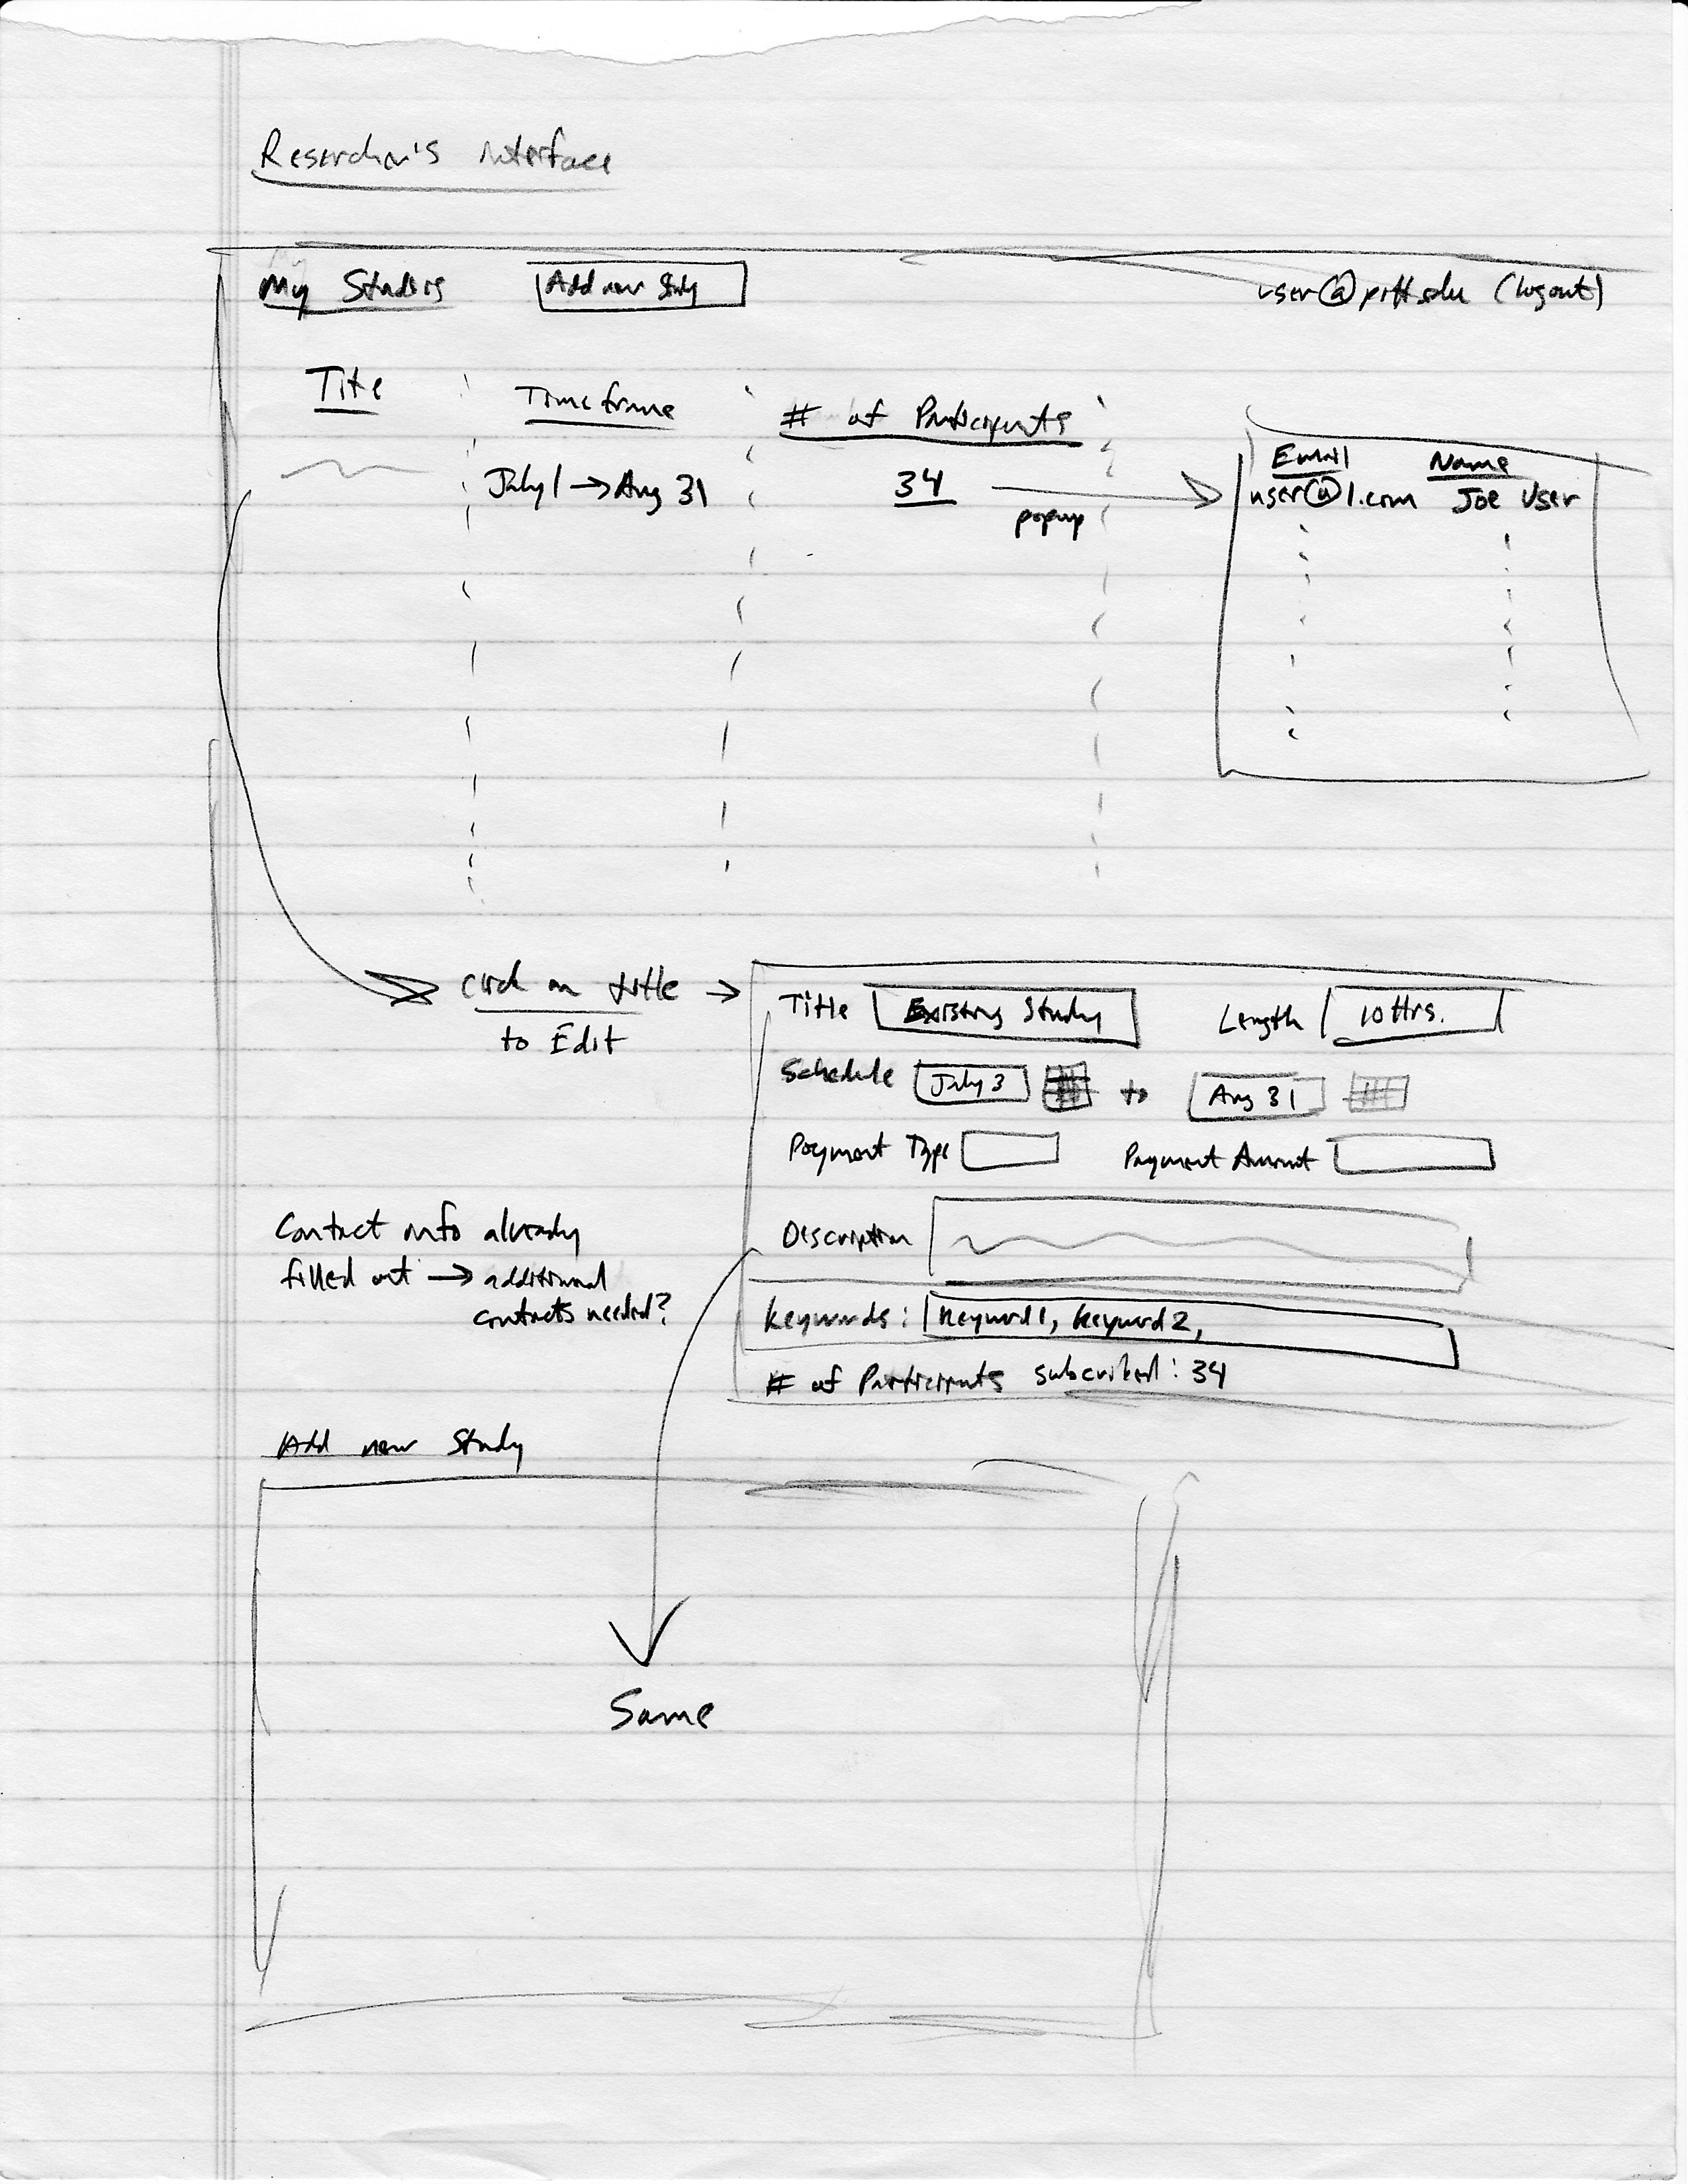 Researcher's Interface
My Studies Add new Study user@pitt.edu (logout)
Title Timeframe # of Participants
July 1 → Aug 31 34 popup
Email Name
user@1.com Joe User
click on title →
to Edit
Title Existing Study Length 10 Hrs.
Schedule July 3 to Aug 31
Payment Type Payment Amount
Description
Keywords: Keyword1, Keyword2,
# of Participants subscribed: 34
Contact info already
filled out → additional
contacts needed?
Add new Study
Same